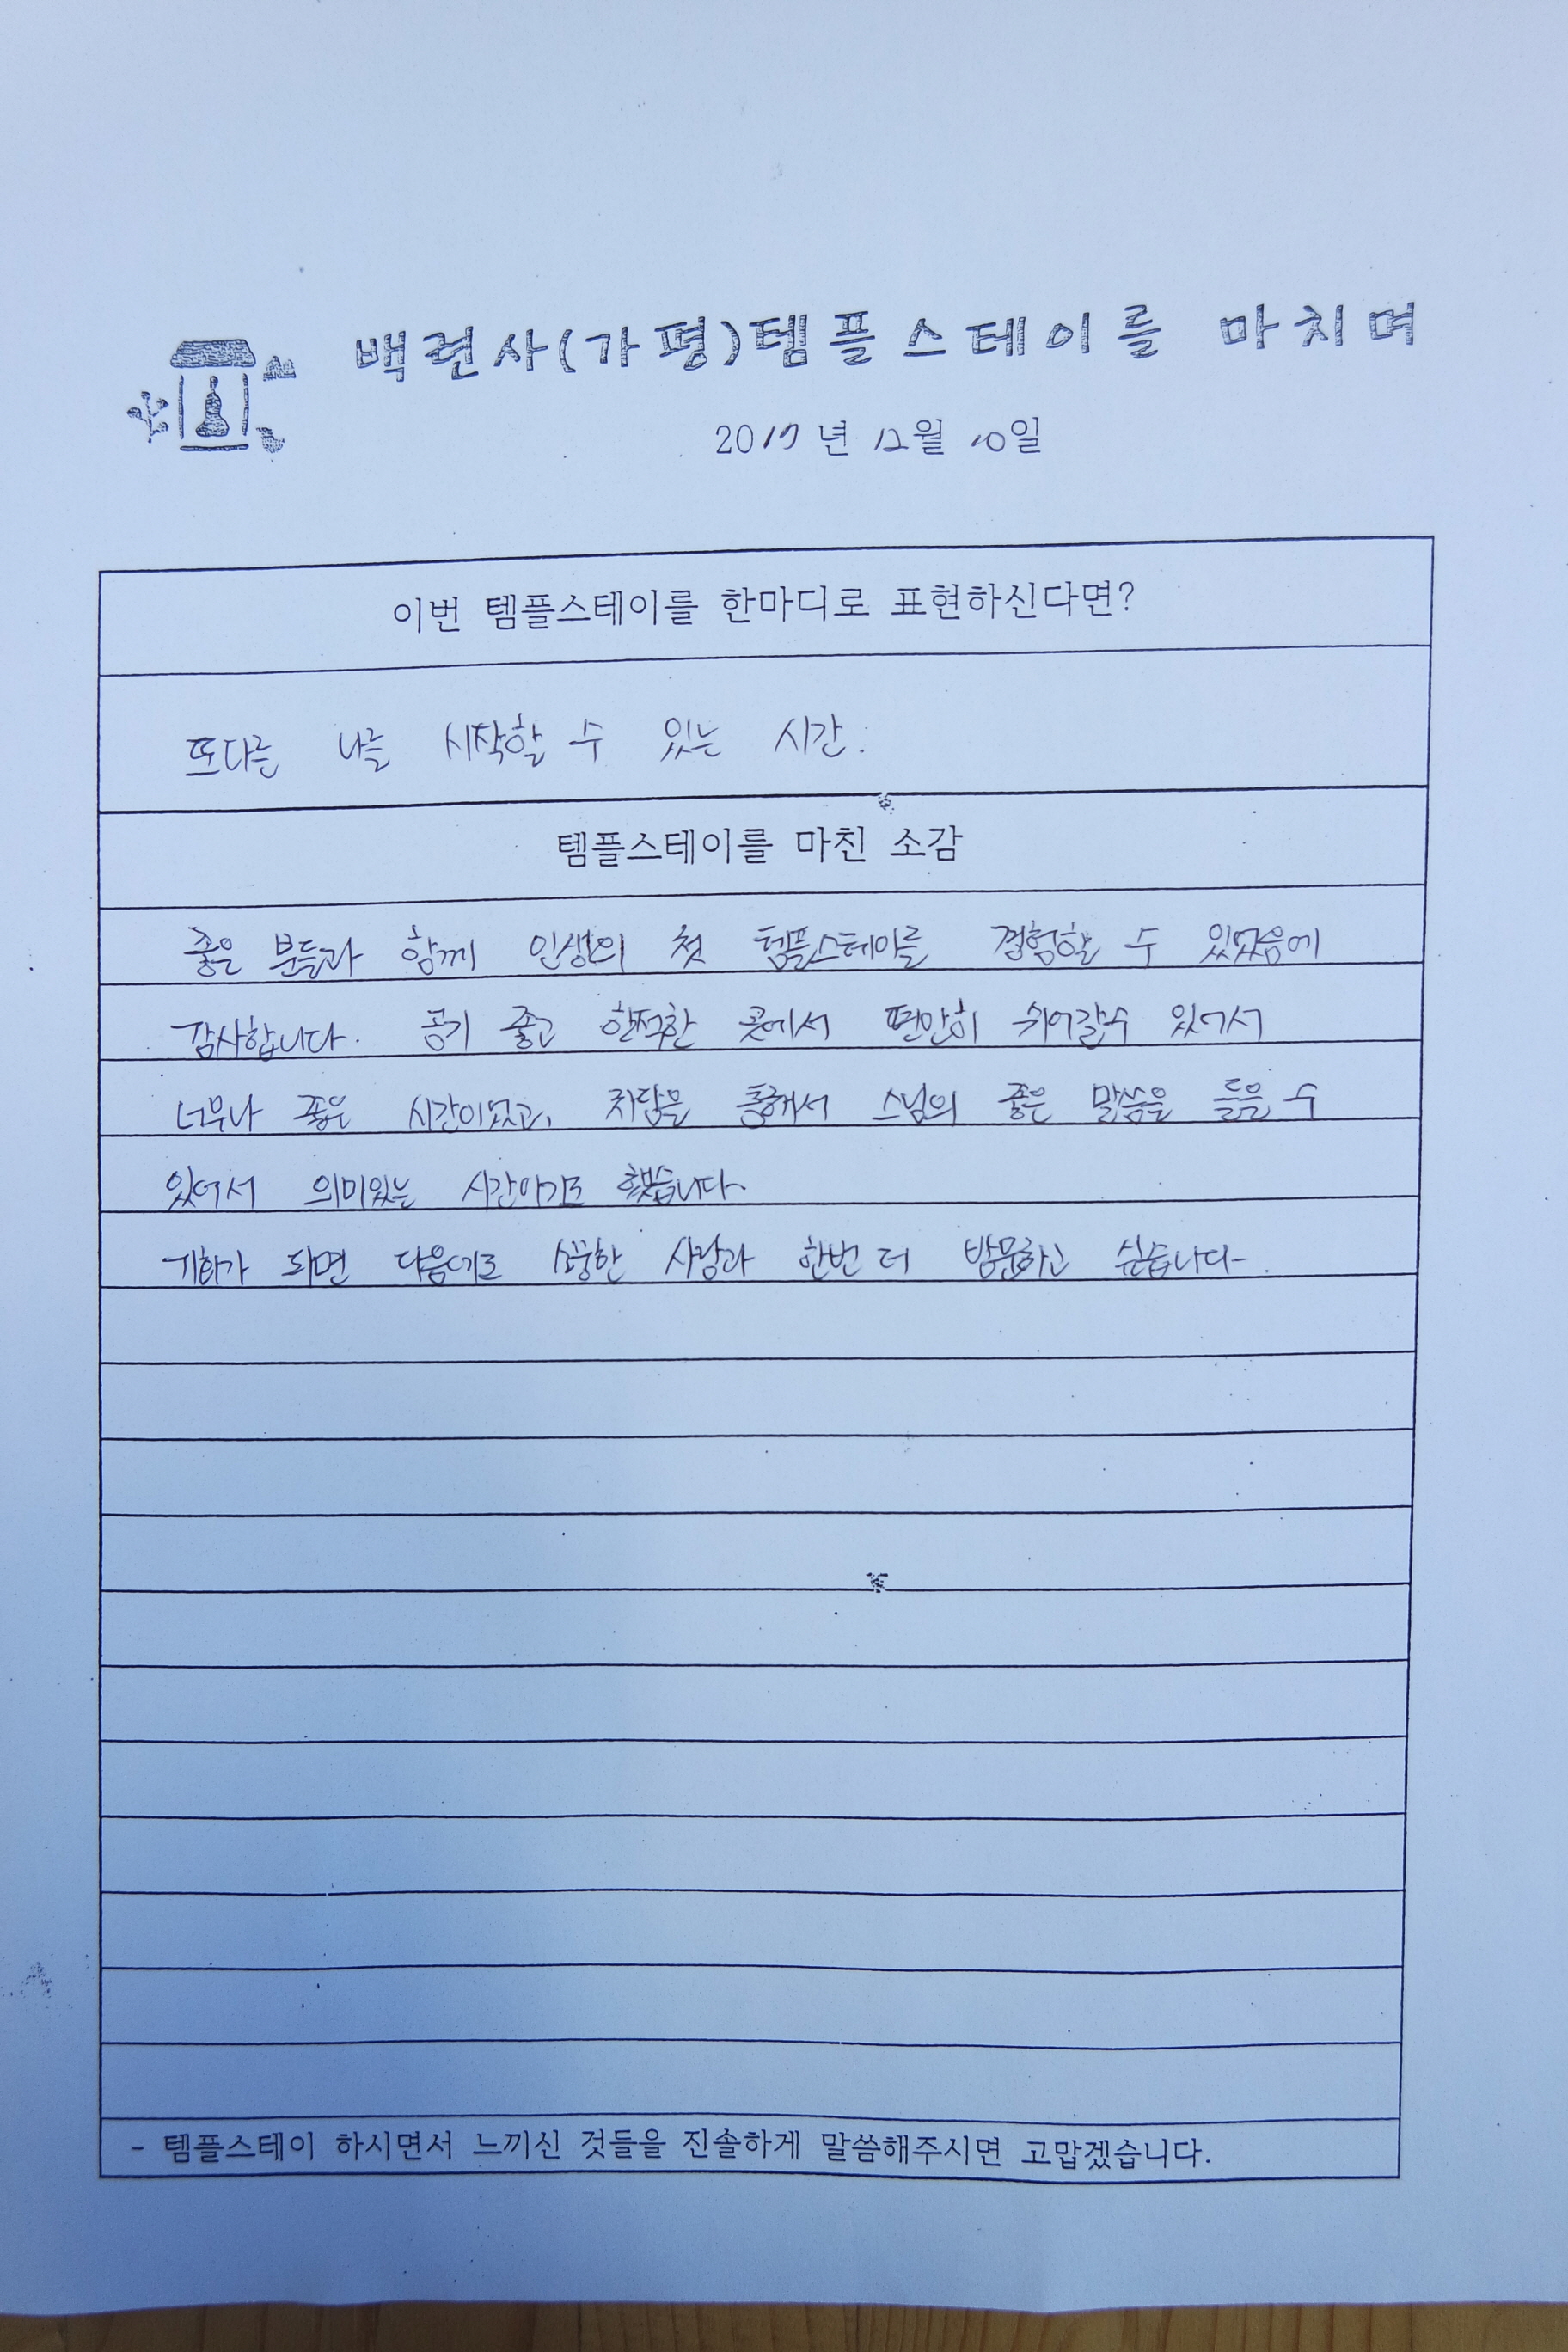 백련사(가평)템플스테이를 마치며
2017년 12월 10일
이번 템플스테이를 한마디로 표현하신다면?
또다른 나를 시작할 수 있는 시간.
템플스테이를 마친 소감
좋은 분들과 함께 인생의 첫 템플스테이를 경험할 수 있었음에
감사합니다. 공기 좋고 한적한 곳에서 편안히 쉬어갈수 있어서
너무나 좋은 시간이었고, 차담을 통해서 스님의 좋은 말씀을 들을 수
있어서 의미있는 시간이기도 했습니다.
기회가 되면 다음에도 소중한 사람과 한번 더 방문하고 싶습니다.
- 템플스테이 하시면서 느끼신 것들을 진솔하게 말씀해주시면 고맙겠습니다.